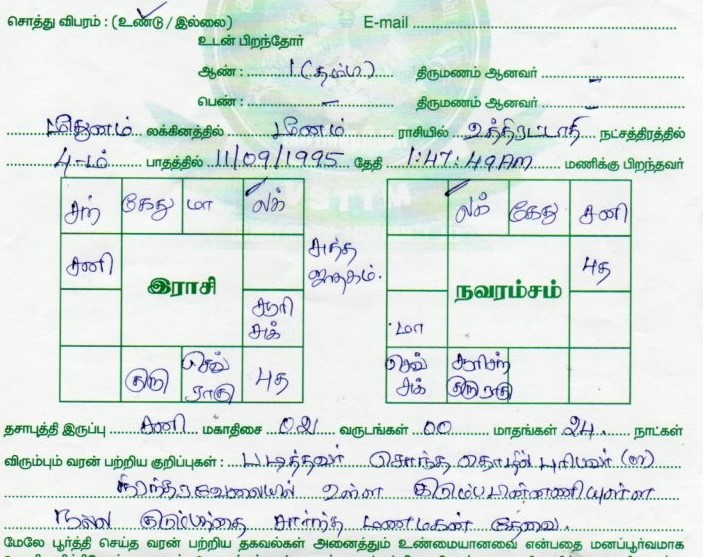 சொத்து விபரம் : (உண்டு / இல்லை) E-mail
உடன் பிறந்தோர்
ஆண் : 1 (தம்பி) திருமணம் ஆனவர் –
பெண் : – திருமணம் ஆனவர் –
மிதுனம் லக்கினத்தில் மீனம் ராசியில் உத்திரட்டாதி நட்சத்திரத்தில்
4-ம் பாதத்தில் 11/09/1995 தேதி 1:47:49 AM மணிக்கு பிறந்தவர்
சந் கேது மா லக்
சனி
இராசி
சூரி
சுக்
குரு செவ் ராகு புத
சுத்த
ஜாதகம்.
லக் கேது சனி
புத
நவாம்சம்
மா
செவ் சுக் சூரி சந் குரு ராகு
தசாபுத்தி இருப்பு சனி மகாதிசை 02 வருடங்கள் 00 மாதங்கள் 24 நாட்கள்
விரும்பும் வரன் பற்றிய குறிப்புகள் : படித்தவர் சொந்த தொழில் புரிபவர் (or)
நிரந்தரவேலையில் உள்ள குடும்பபின்னணியுள்ள
நல்ல குடும்பத்தை சார்ந்த மணமகன் தேவை.
மேலே பூர்த்தி செய்த வரன் பற்றிய தகவல்கள் அனைத்தும் உண்மையானவை என்பதை மனப்பூர்வமாக